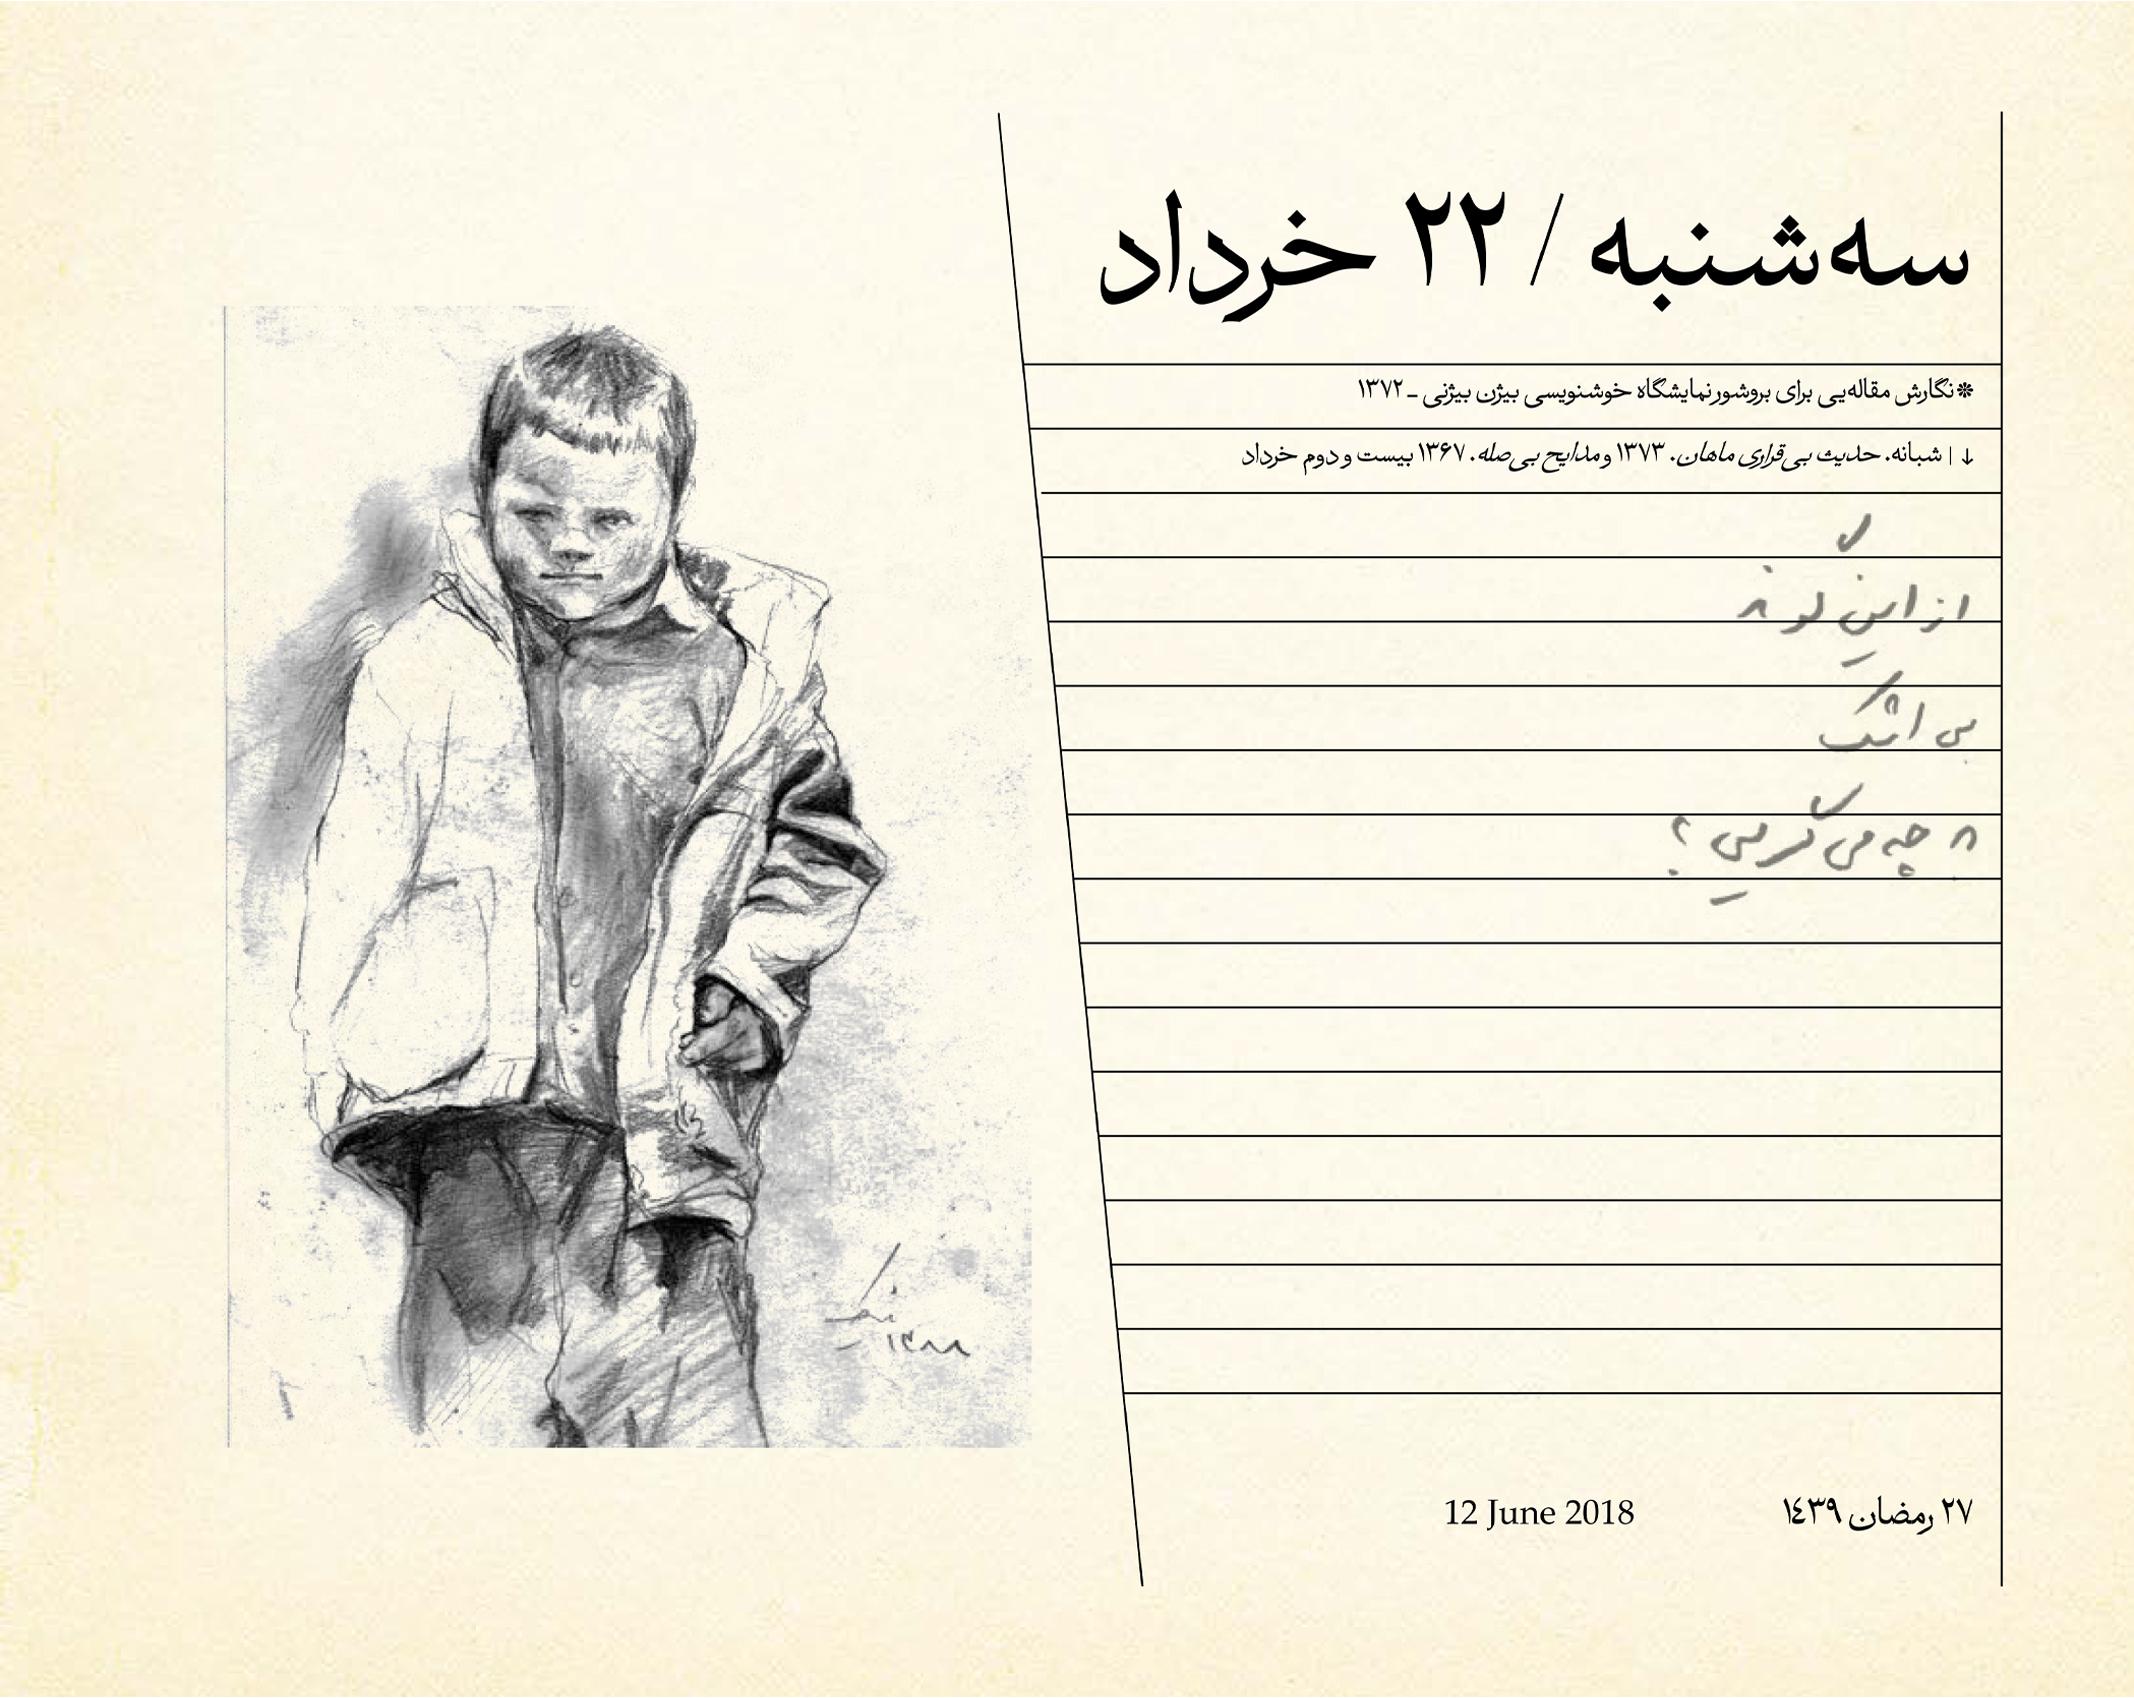 سه‌شنبه / ۲۲ خرداد
* نگارش مقاله‌یی برای بروشور نمایشگاه خوشنویسی بیژن بیژنی ـ ۱۳۷۲
↓ | شبانه. حدیث بی‌قراری ماهان. ۱۳۷۳ و مدایح بی‌صله. ۱۳۶۷ بیست و دوم خرداد
از این گونه
بی اشک
به چه می‌گریی؟
۱۳۸۸
۲۷ رمضان ۱۴۳۹
12 June 2018